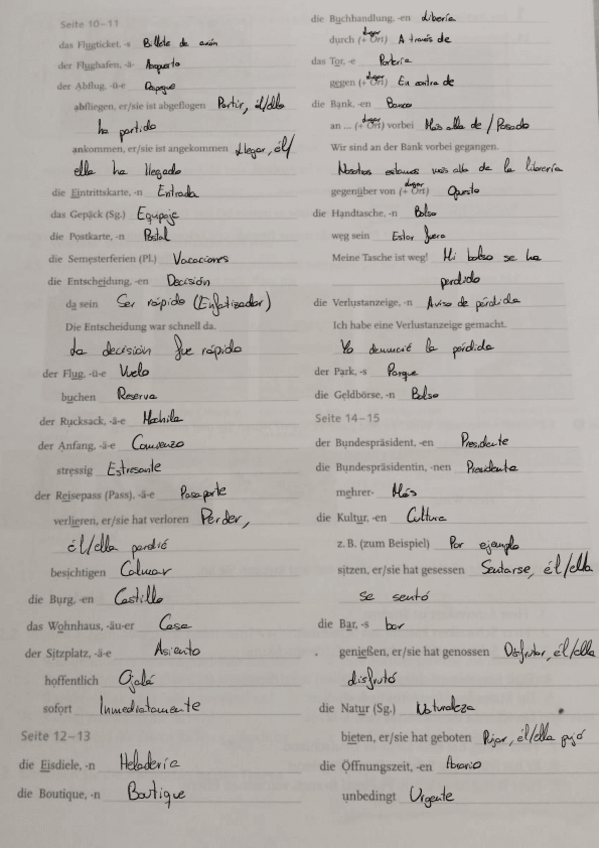 Seite 10–11
das Flugticket, -s Billete de avión
der Flughafen, -ä- Aeropuerto
der Abflug, -ü-e Despegue
abfliegen, er/sie ist abgeflogen Partir, él/ella
ha partido
ankommen, er/sie ist angekommen Llegar, él/
ella ha llegado
die Eintrittskarte, -n Entrada
das Gepäck (Sg.) Equipaje
die Postkarte, -n Postal
die Semesterferien (Pl.) Vacaciones
die Entscheidung, -en Decisión
da sein Ser rápido (Enfatizador)
Die Entscheidung war schnell da.
La decisión fue rápido
der Flug, -ü-e Vuelo
buchen Reserva
der Rucksack, -ä-e Mochila
der Anfang, -ä-e Comienzo
stressig Estresante
der Reisepass (Pass), -ä-e Pasaporte
verlieren, er/sie hat verloren Perder,
él/ella perdió
besichtigen Calmar
die Burg, -en Castillo
das Wohnhaus, -äu-er Casa
der Sitzplatz, -ä-e Asiento
hoffentlich Ojalá
sofort Inmediatamente
Seite 12–13
die Eisdiele, -n Heladería
die Boutique, -n Boutique
die Buchhandlung, -en Librería
durch (+ Ort) lugar A través de
das Tor, -e Portería
gegen (+ Ort) lugar En contra de
die Bank, -en Banco
an ... (+ Ort) vorbei lugar Más alla de / Pasado
Wir sind an der Bank vorbei gegangen.
Nosotros estamos más alla de la librería
gegenüber von (+ Ort) lugar Opuesto
die Handtasche, -n Bolso
weg sein Estar fuera
Meine Tasche ist weg! Mi bolso se ha
perdido
die Verlustanzeige, -n Aviso de pérdida
Ich habe eine Verlustanzeige gemacht.
Yo denuncié la pérdida
der Park, -s Parque
die Geldbörse, -n Bolso
Seite 14–15
der Bundespräsident, -en Presidente
die Bundespräsidentin, -nen Presidenta
mehrer- Más
die Kultur, -en Cultura
z. B. (zum Beispiel) Por ejemplo
sitzen, er/sie hat gesessen Sentarse, él/ella
se sentó
die Bar, -s bar
genießen, er/sie hat genossen Disfrutar, él/ella
disfrutó
die Natur (Sg.) Naturaleza
bieten, er/sie hat geboten Pujar, él/ella pujó
die Öffnungszeit, -en Horario
unbedingt Urgente